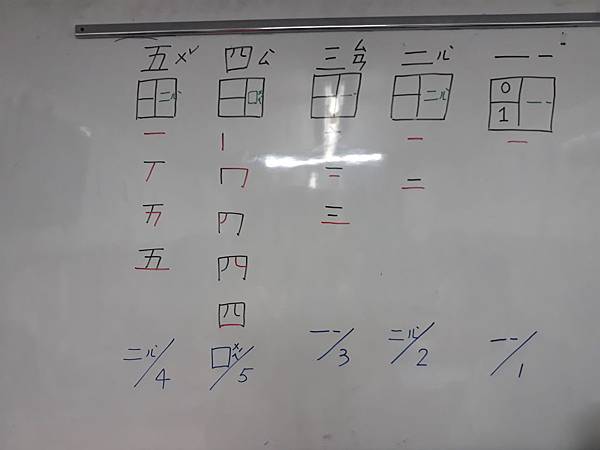 五ㄨˇ 四ㄙˋ 三ㄙㄢ 二ㄦˋ 一ㄧ
二ㄦˋ 囗ㄨㄟˊ 一ㄧ 二ㄦˋ 0 1 一ㄧ
一 丨 一 一 一
丅 冂 二 二
三
五
四
二ㄦˋ/4 囗ㄨㄟˊ/5 一ㄧ/3 二ㄦˋ/2 一ㄧ/1